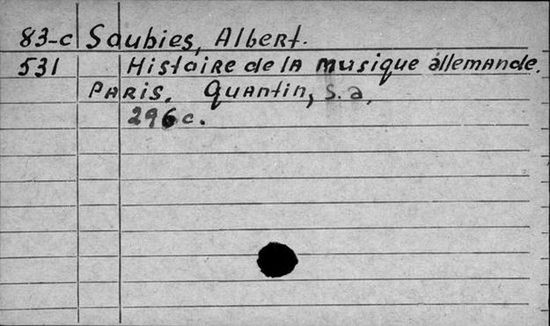 83-c Saubies, Albert.
531 Histoire de la musique allemande.
Paris. Quantin, s.a.
296 c.